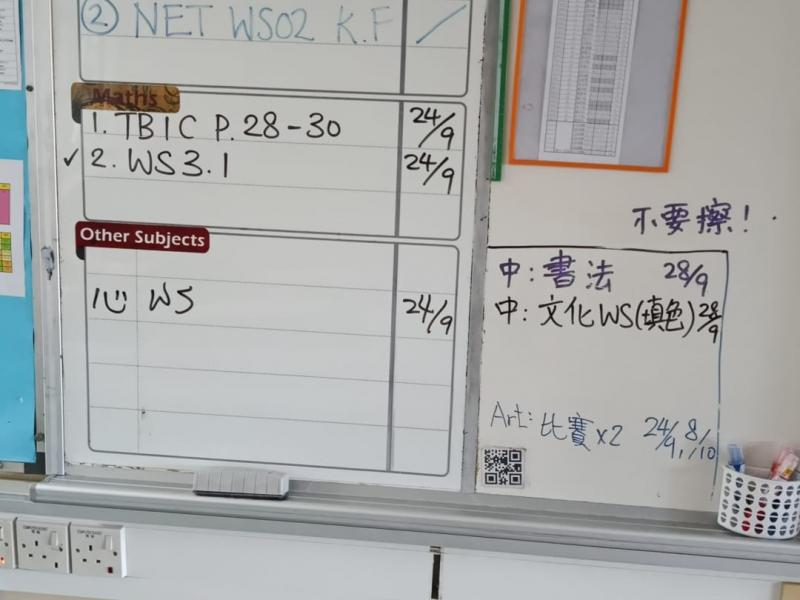 ② NET WS02 K.F /
Maths
1. TB1C P.28-30 24/9
✓ 2. WS3.1 24/9
Other Subjects
心 WS 24/9
不要擦!
中: 書法 28/9
中: 文化WS(填色) 28/9
Art: 比賽x2 24/9, 8/10